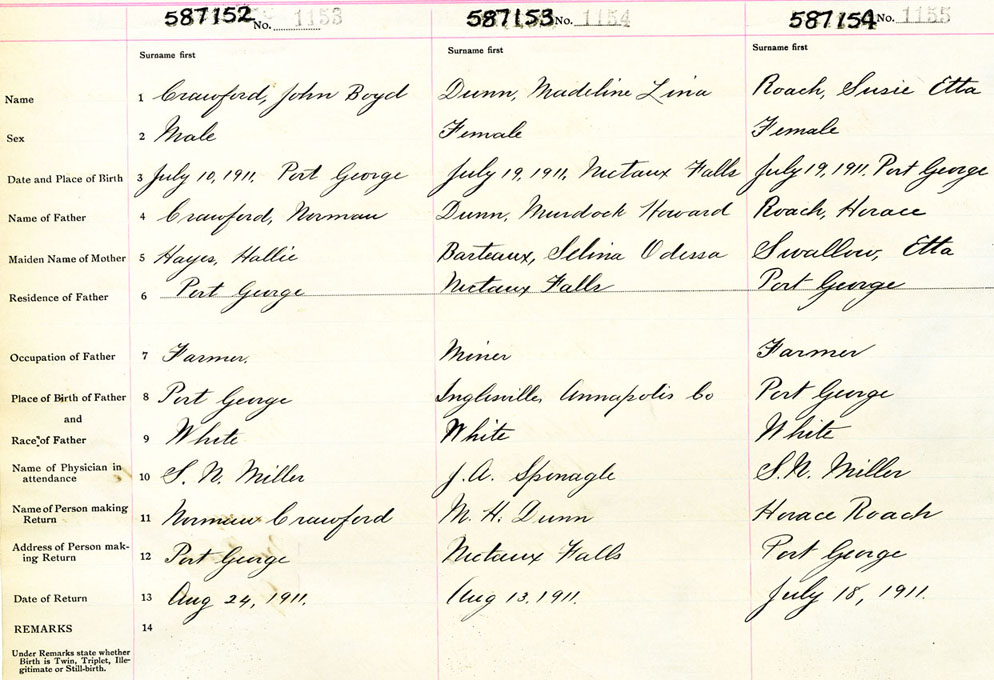 587152 No. 1153 587153 No. 1154 587154 No. 1155
Surname first Surname first Surname first
Name 1 Crawford, John Boyd Dunn, Madeline Lina Roach, Susie Etta
Sex 2 Male Female Female
Date and Place of Birth 3 July 10, 1911. Port George July 19, 1911, Nictaux Falls July 19, 1911. Port George
Name of Father 4 Crawford, Norman Dunn, Murdock Howard Roach, Horace
Maiden Name of Mother 5 Hayes, Hallie Barteaux, Selina Odessa Swallow, Etta
Residence of Father 6 Port George Nictaux Falls Port George
Occupation of Father 7 Farmer. Miner Farmer
Place of Birth of Father 8 Port George Inglisville, Annapolis Co Port George
and
Race of Father 9 White White White
Name of Physician in
attendance 10 S. N. Miller J. A. Sponagle S. N. Miller
Name of Person making
Return 11 Norman Crawford M. H. Dunn Horace Roach
Address of Person mak-
ing Return 12 Port George Nictaux Falls Port George
Date of Return 13 Aug 24, 1911. Aug 13, 1911. July 18, 1911.
REMARKS 14
Under Remarks state whether
Birth is Twin, Triplet, Ille-
gitimate or Still-birth.